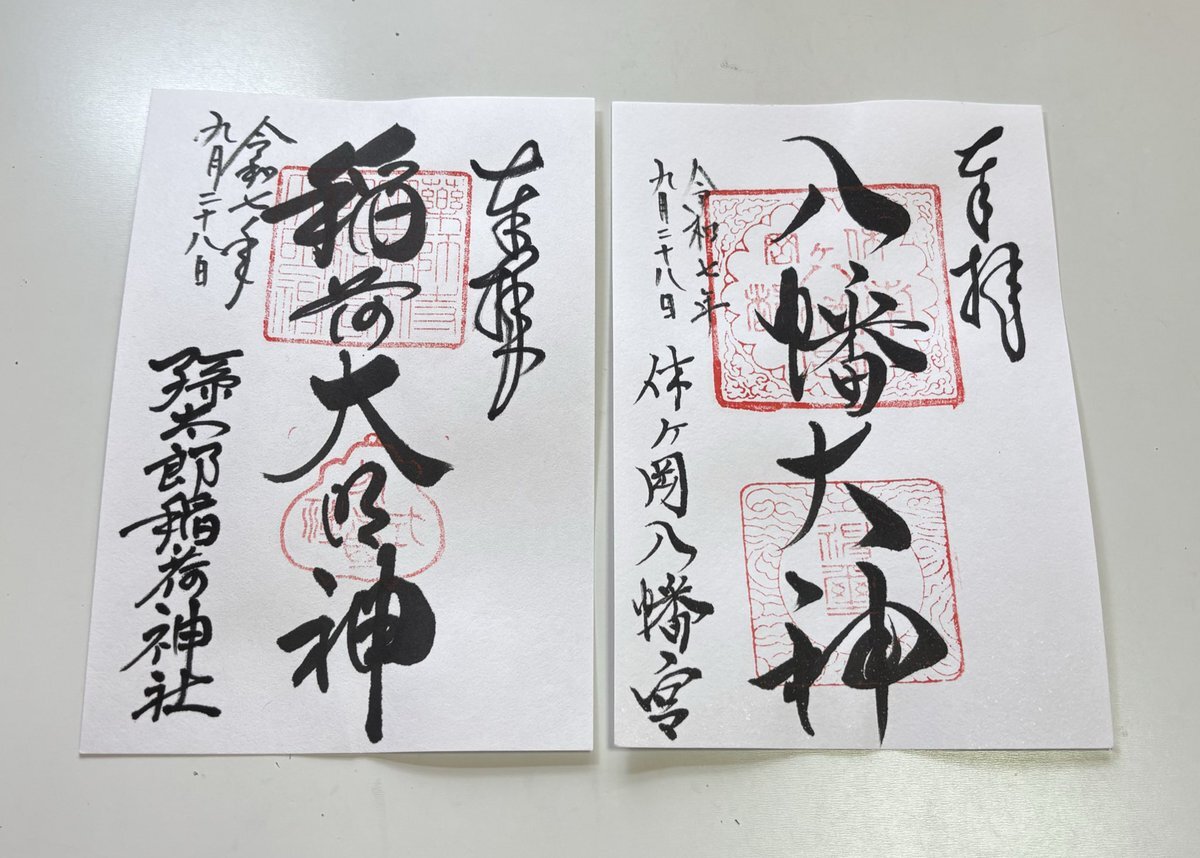 奉拝
八幡大神
令和七年
九月二十八日
休ヶ岡八幡宮
奉拝
稲荷大明神
令和七年
九月二十八日
孫太郎稲荷神社